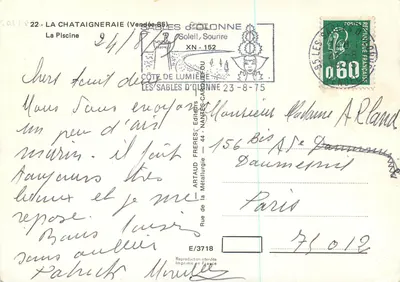 22 - LA CHATAIGNERAIE (Vendée 85)
La Piscine
24/8/75
Chers tout deux
Nous vous envoyons
un peu d'air
marin. il fait
toujours très
beau et je me
repose.
Bons baisers
sans oublier
Patrick Mireille
SABLES D'OLONNE
Soleil, Sourire
XN - 152
CÔTE DE LUMIÈRE
LES SABLES D'OLONNE 23-8-75
85 LES S
0,60
ARTAUD FRERES, EDITEURS
Rue de la Métallurgie - 44 - NANTES-CARQUEFOU
E/3718
Reproduction interdite
Imprimé en France
Monsieur Madame ARLAND
156 Bis A de Daumesnil
Daumesnil
Paris
75012